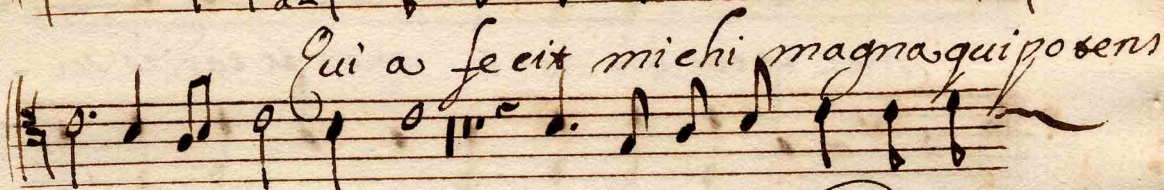 Qui a fecit michi magna qui potens